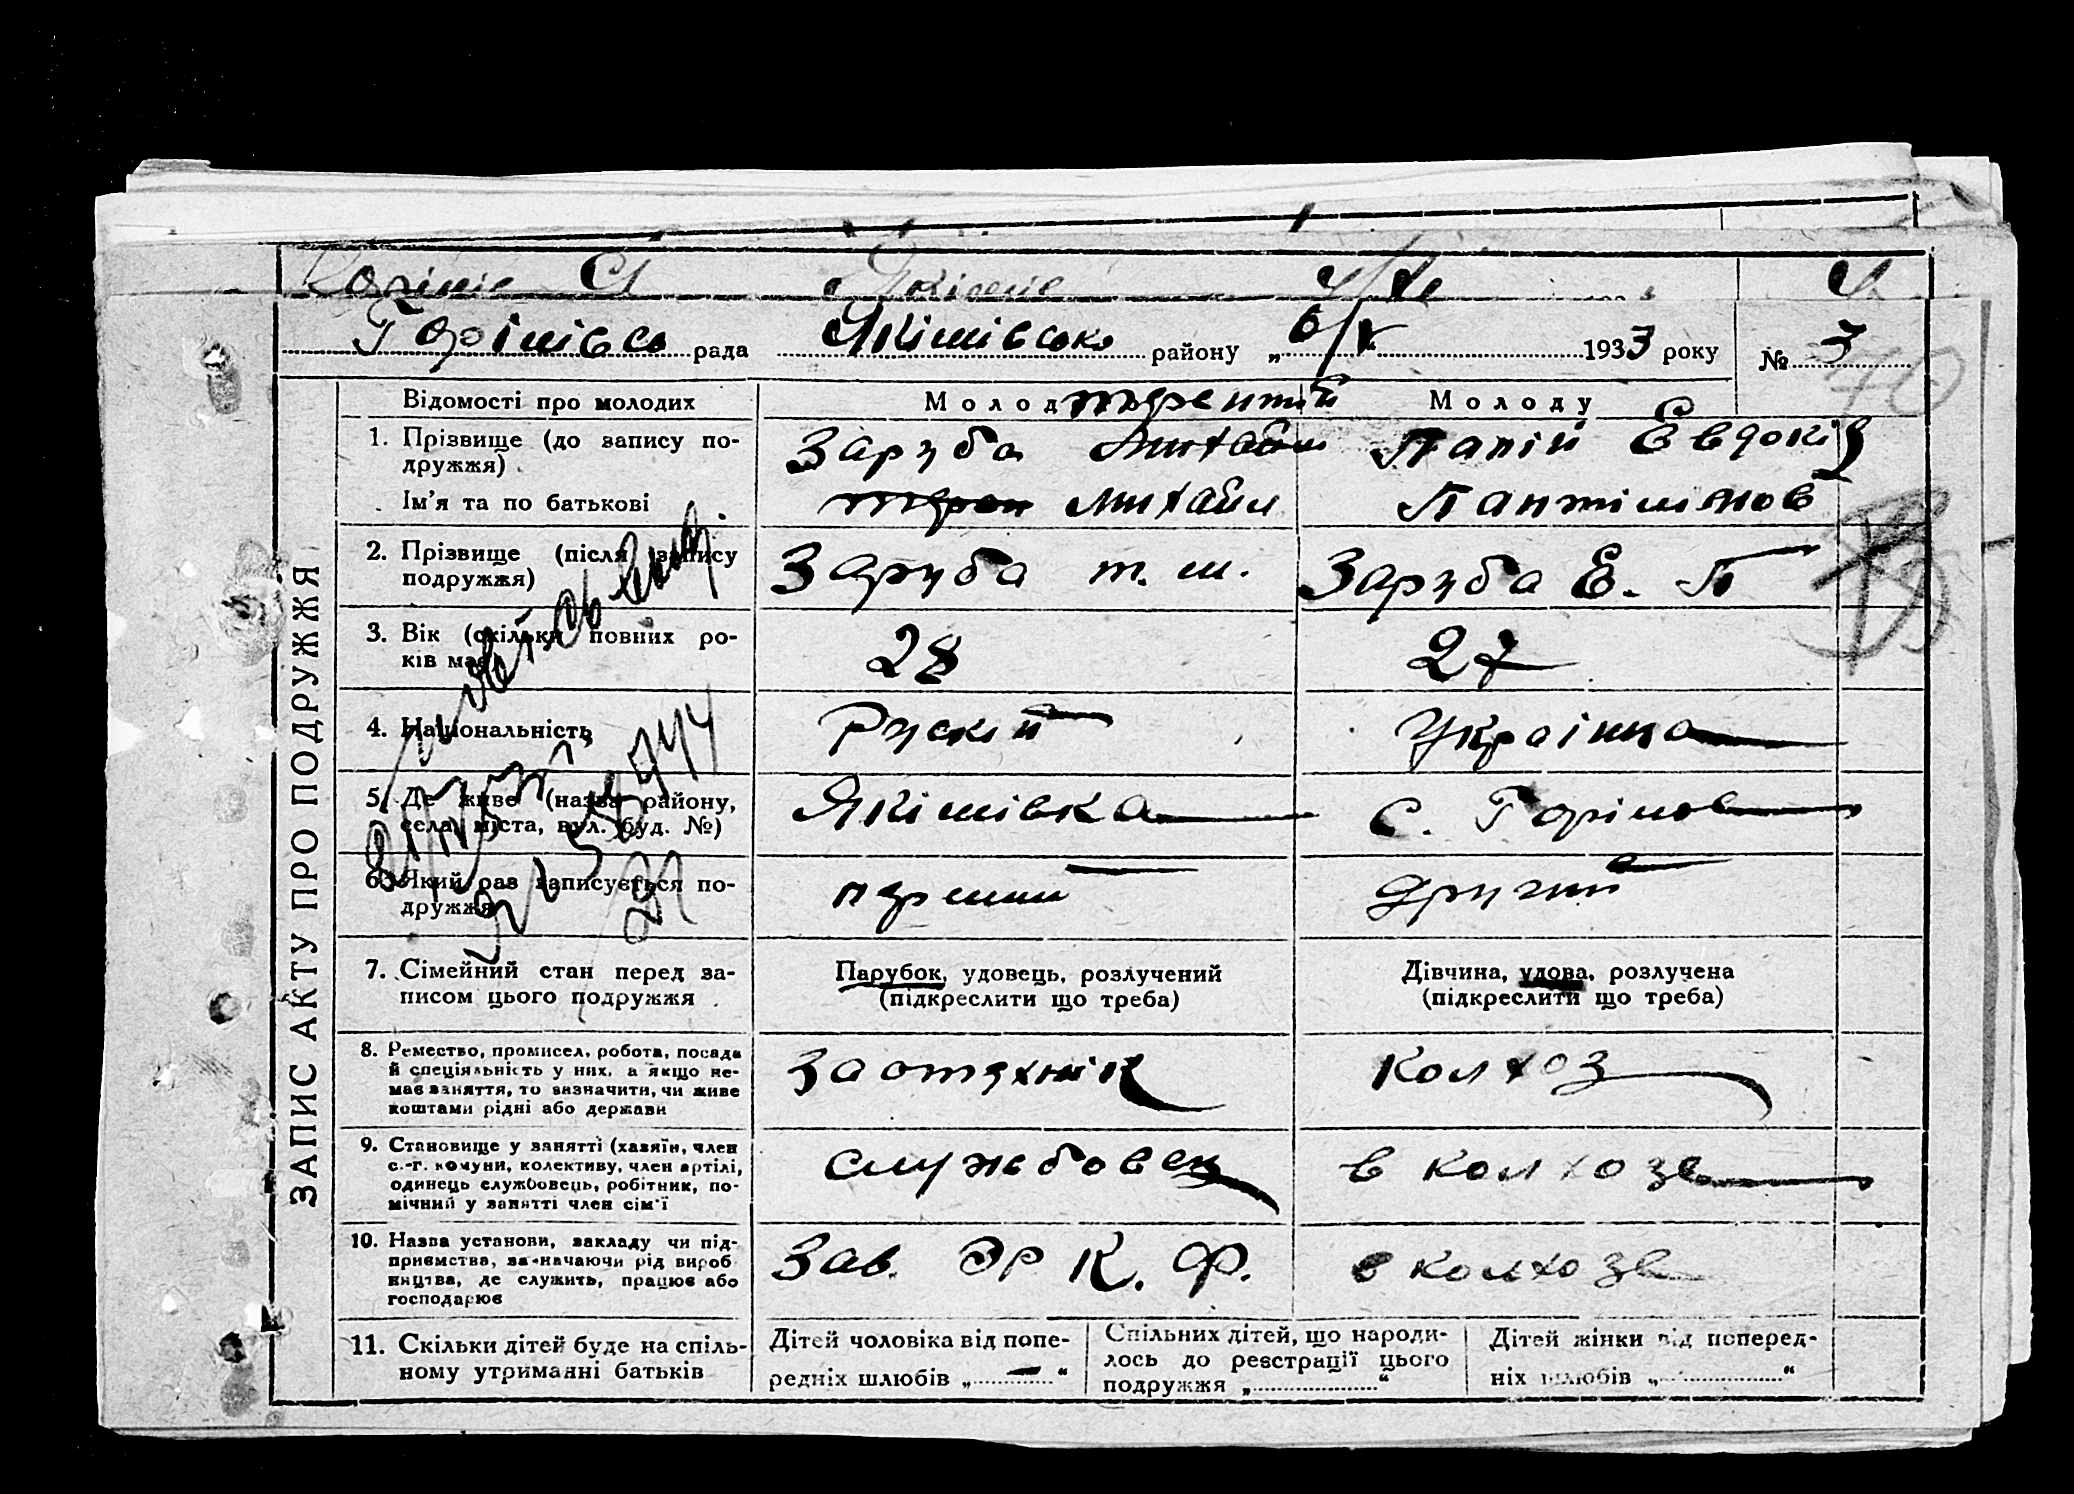 Горінівсь рада Якімівсько району „6/V“ 1933 року № 3
40
ЗАПИС АКТУ ПРО ПОДРУЖЖЯ
Відомості про молодих
Молод терентій
Молоду
1. Прізвище (до запису по-
дружжя)
Ім’я та по батькові
Заруба Михайл
Михайл
Папій Евдокія
Пантімонов
2. Прізвище (після запису
подружжя)
Заруба т. м.
Заруба Е. П
3. Вік (скільки повних ро-
ків має)
28
27
4. Національність
Рускій
Українка
5. Де живе (назва району,
села, міста, вул. буд. №)
Якімівка
с. Горінов
6. Який раз записується по-
дружжя
перший
другий
7. Сімейний стан перед за-
писом цього подружжя
Парубок, удовець, розлучений
(підкреслити що треба)
Дівчина, удова, розлучена
(підкреслити що треба)
8. Ремество, промисел, робота, посада
й спеціяльність у них, а якщо не-
має заняття, то зазначити, чи живе
коштами рідні або держави
Заотехнік
Колхоз
9. Становище у занятті (хазяїн, член
с.-г. комуни, колективу, член артілі,
одинець службовець, робітник, по-
мічний у занятті член сім’ї
службовец
в колхозе
10. Назва установи, закладу чи під-
приємства, зазначаючи рід вироб
ництва, де служить, працює або
господарює
Зав. ЭР К. Ф.
в колхозе
11. Скільки дітей буде на спіль-
ному утриманні батьків
Дітей чоловіка від попе-
редніх шлюбів „—“
Спільних дітей, що народи-
лось до реєстрації цього
подружжя „ “
Дітей жінки від поперед-
ніх шлюбів „ “